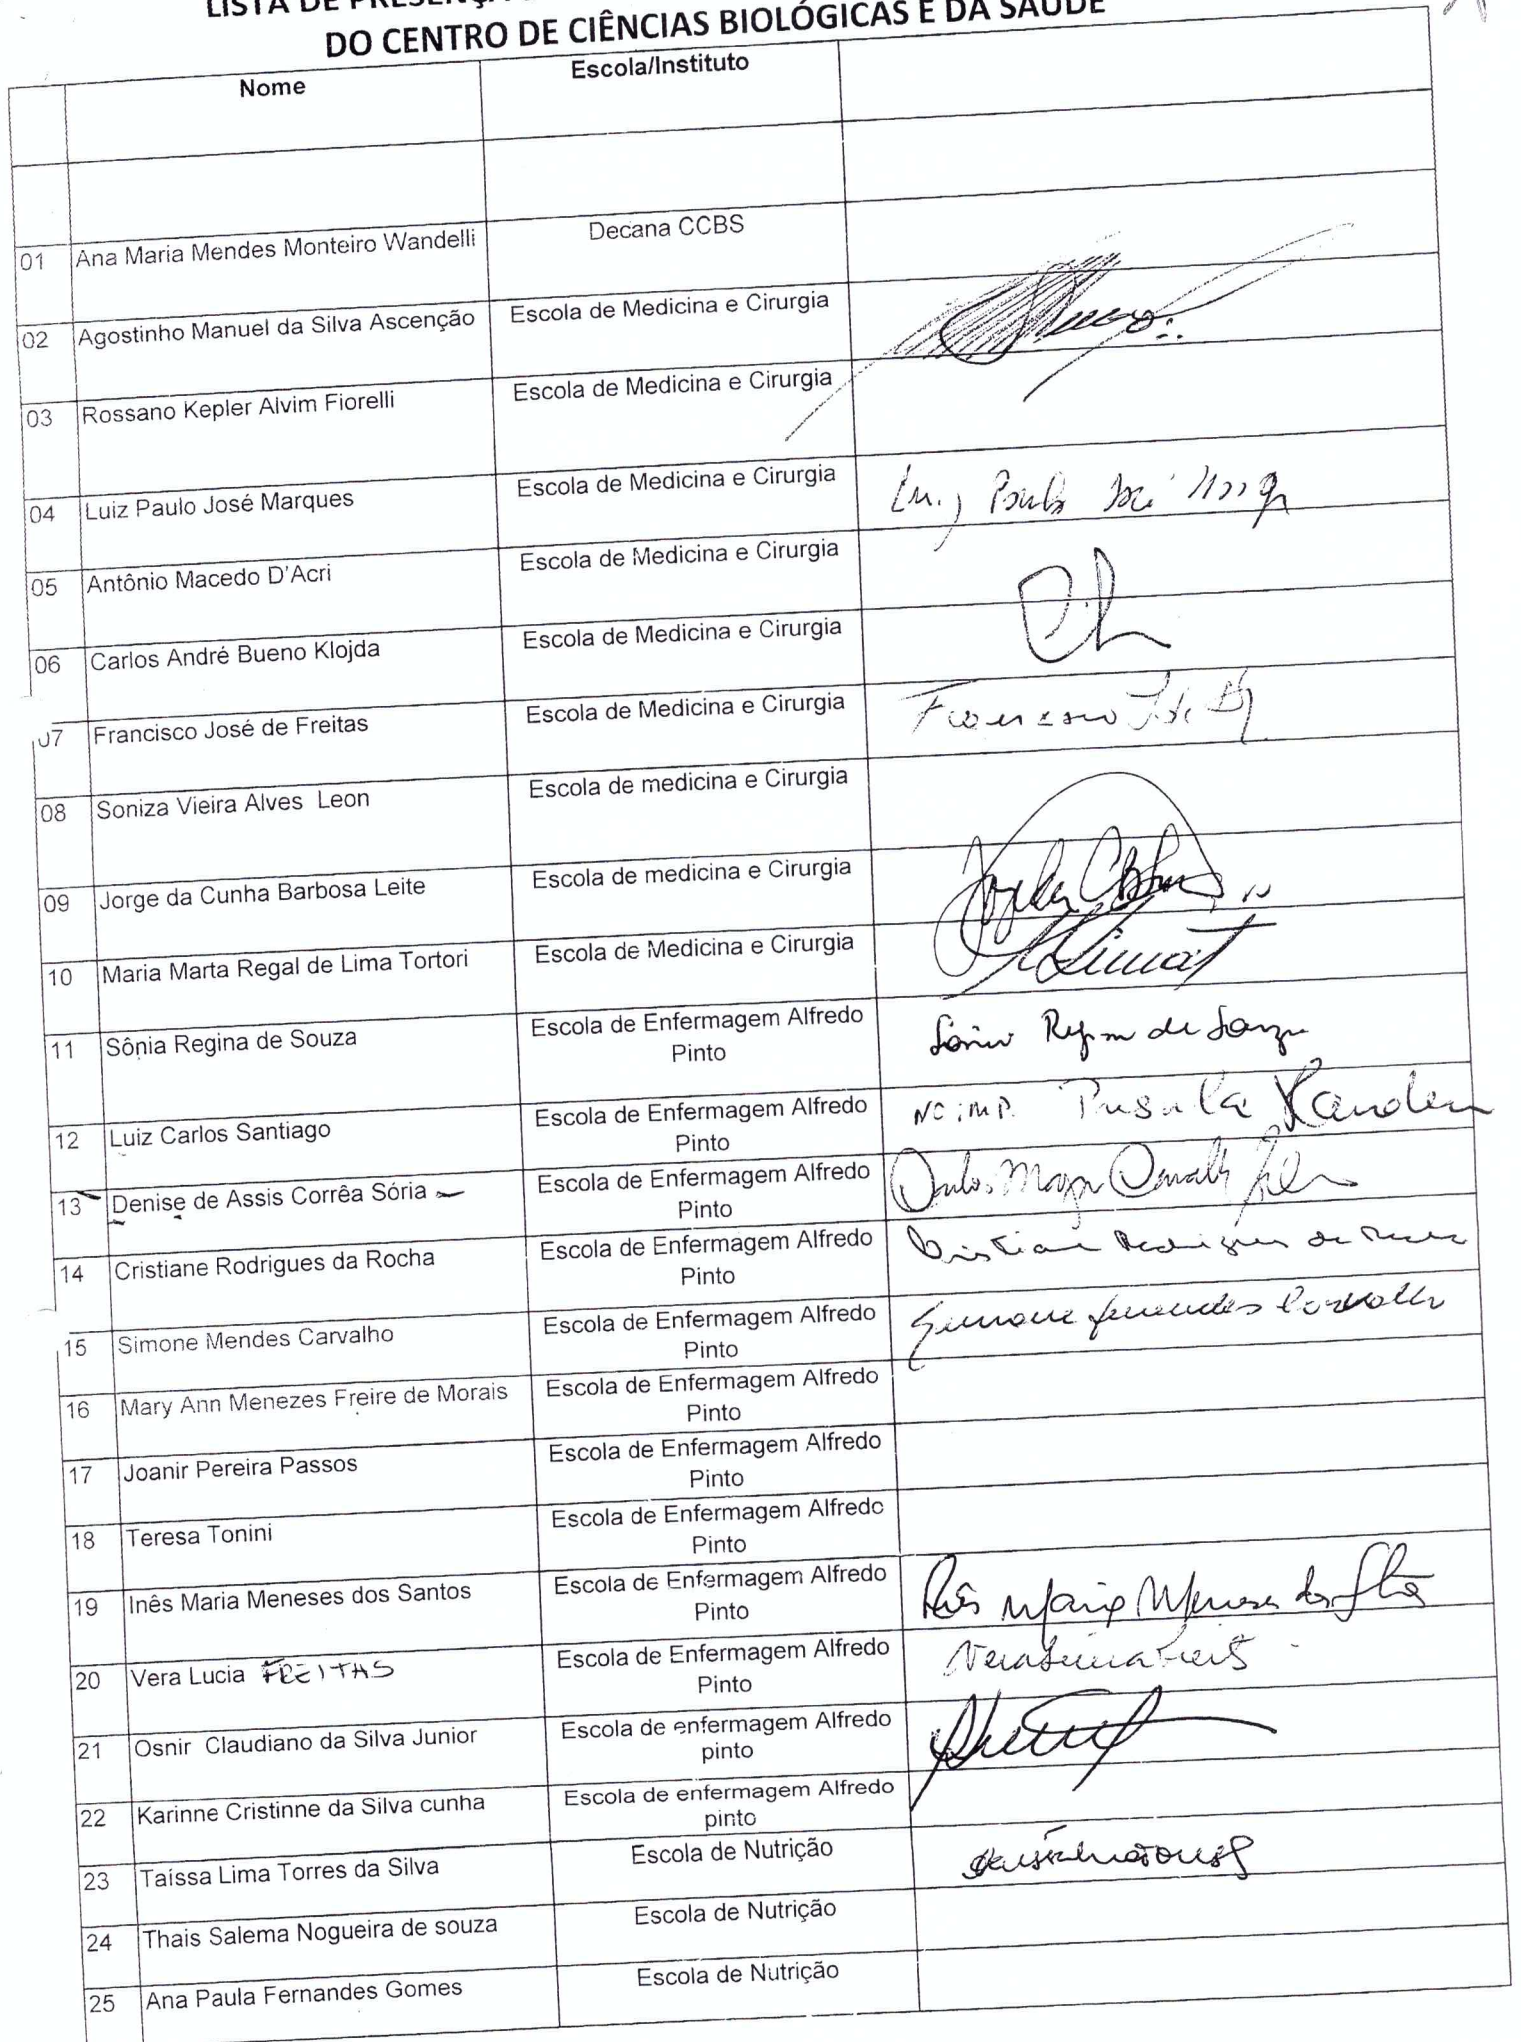 LISTA DE PRESENÇA
DO CENTRO DE CIÊNCIAS BIOLÓGICAS E DA SAÚDE
Nome Escola/Instituto
01 Ana Maria Mendes Monteiro Wandelli Decana CCBS
02 Agostinho Manuel da Silva Ascenção Escola de Medicina e Cirurgia
03 Rossano Kepler Alvim Fiorelli Escola de Medicina e Cirurgia
04 Luiz Paulo José Marques Escola de Medicina e Cirurgia
05 Antônio Macedo D'Acri Escola de Medicina e Cirurgia
06 Carlos André Bueno Klojda Escola de Medicina e Cirurgia
07 Francisco José de Freitas Escola de Medicina e Cirurgia
08 Soniza Vieira Alves Leon Escola de medicina e Cirurgia
09 Jorge da Cunha Barbosa Leite Escola de medicina e Cirurgia
10 Maria Marta Regal de Lima Tortori Escola de Medicina e Cirurgia
11 Sônia Regina de Souza Escola de Enfermagem Alfredo Sônia Regina de Souza
Pinto
12 Luiz Carlos Santiago Escola de Enfermagem Alfredo
Pinto
13 Denise de Assis Corrêa Sória Escola de Enfermagem Alfredo
Pinto
14 Cristiane Rodrigues da Rocha Escola de Enfermagem Alfredo Cristiane Rodrigues da Rocha
Pinto
15 Simone Mendes Carvalho Escola de Enfermagem Alfredo Simone Mendes Carvalho
Pinto
16 Mary Ann Menezes Freire de Morais Escola de Enfermagem Alfredo
Pinto
17 Joanir Pereira Passos Escola de Enfermagem Alfredo
Pinto
18 Teresa Tonini Escola de Enfermagem Alfredo
Pinto
19 Inês Maria Meneses dos Santos Escola de Enfermagem Alfredo Inês Maria Meneses dos Santos
Pinto
20 Vera Lucia FREITAS Escola de Enfermagem Alfredo Vera Lucia Freitas
Pinto
21 Osnir Claudiano da Silva Junior Escola de enfermagem Alfredo
pinto
22 Karinne Cristinne da Silva cunha Escola de enfermagem Alfredo
pinto
23 Taíssa Lima Torres da Silva Escola de Nutrição
24 Thais Salema Nogueira de souza Escola de Nutrição
25 Ana Paula Fernandes Gomes Escola de Nutrição